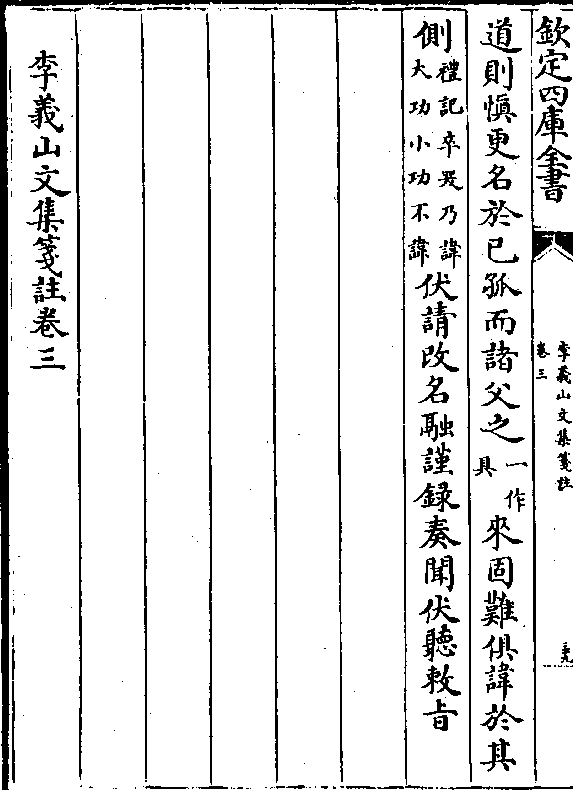 欽定四庫全書
李義山文集箋註
卷三
道則慎更名於已孤而諸父之一作具來固難俱諱於其
側禮記卒哭乃諱大功小功不諱伏請改名融謹錄奏聞伏聽敕旨
李義山文集箋註卷三